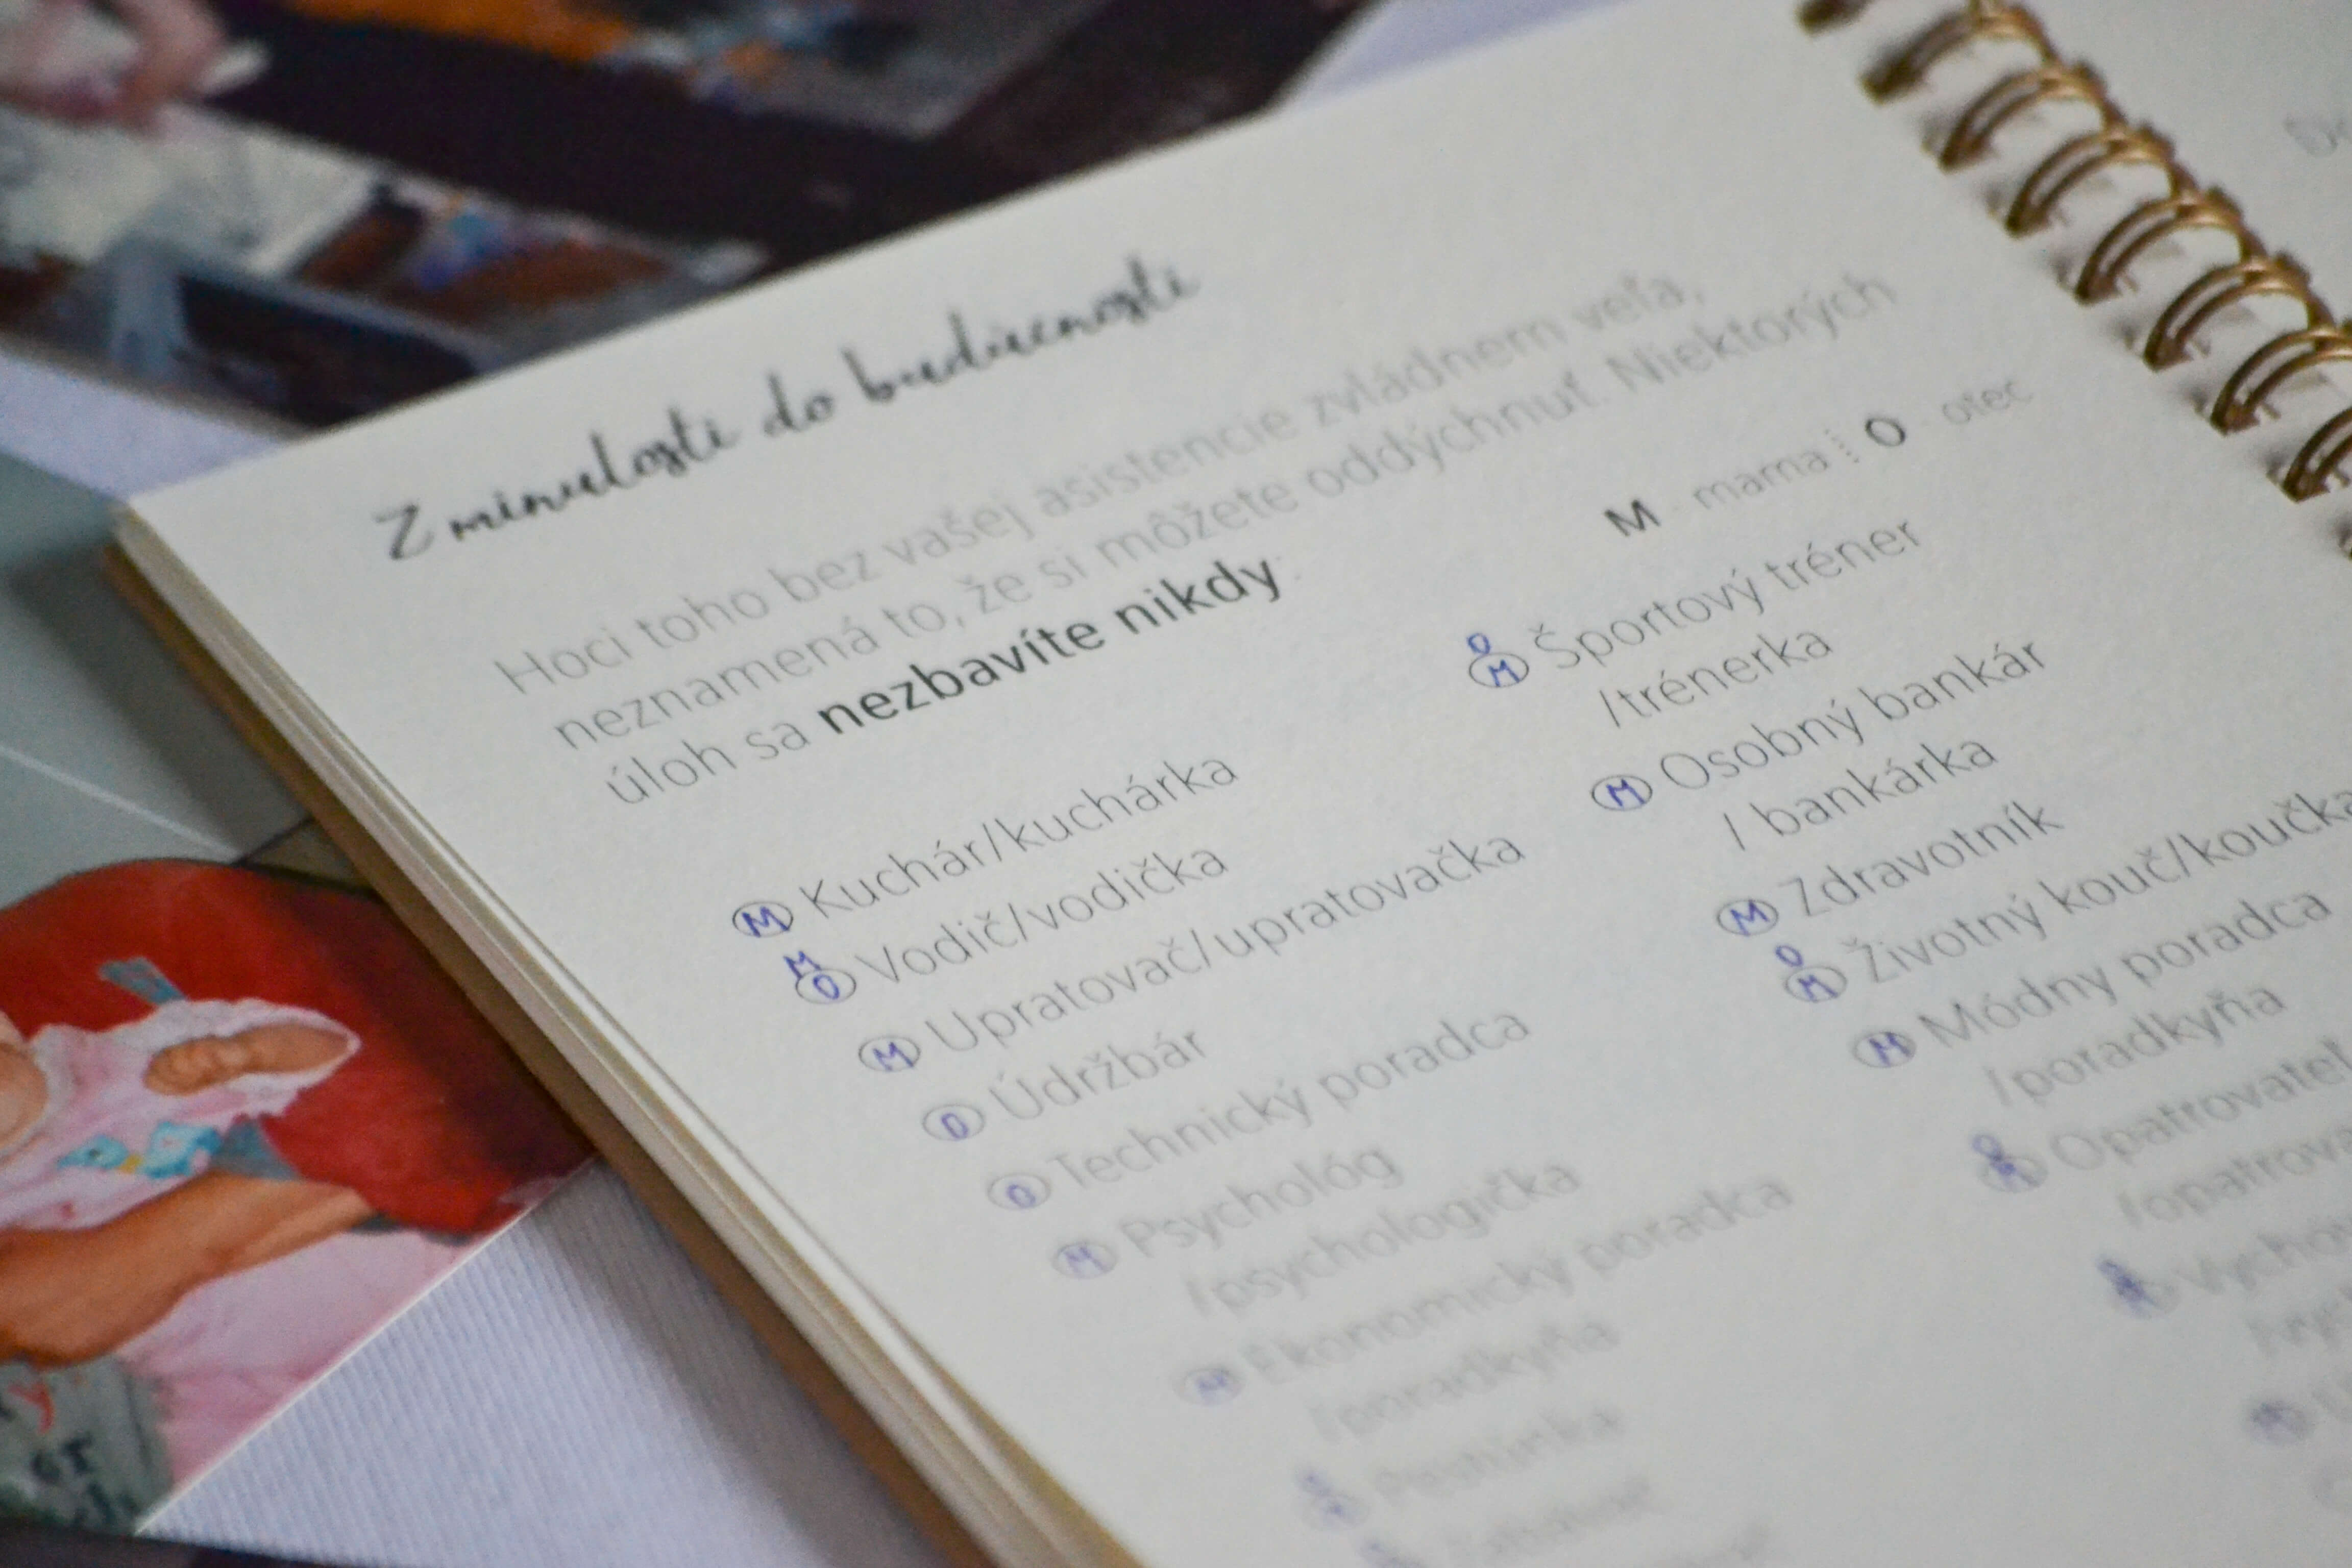 Z minulosti do budúcnosti
Hoci toho bez vašej asistencie zvládnem veľa,
neznamená to, že si môžete oddýchnuť. Niektorých
úloh sa nezbavíte nikdy:
M mama O otec
M Kuchár/kuchárka
M
O Vodič/vodička
M Upratovač/upratovačka
O Údržbár
O Technický poradca
M Psychológ
/psychologička
M Ekonomický poradca
/poradkyňa
O
M Športový tréner
/trénerka
M Osobný bankár
/ bankárka
M Zdravotník
O
M Životný kouč/koučka
M Módny poradca
/poradkyňa
Opatrovateľ